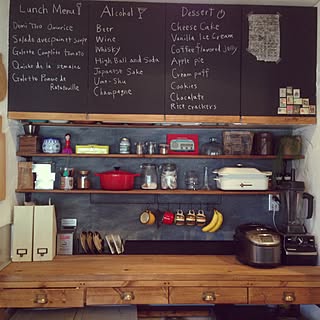 Lunch Menu
Demi Tha Omurice
Salade avec pain et soup
Galette Complète tomato
Quiche de la semaine
Galette Poure de
Ratatouille
Alcohol
Beer
Wine
Whisky
High Ball and Soda
Japanese Sake
Ume-Shu
Champagne
Dessert
Cheese Cake
Vanilla Ice Cream
Coffee flavored Jelly
Apple pie
Cream puff
Cookies
Chocolate
Rice crackers